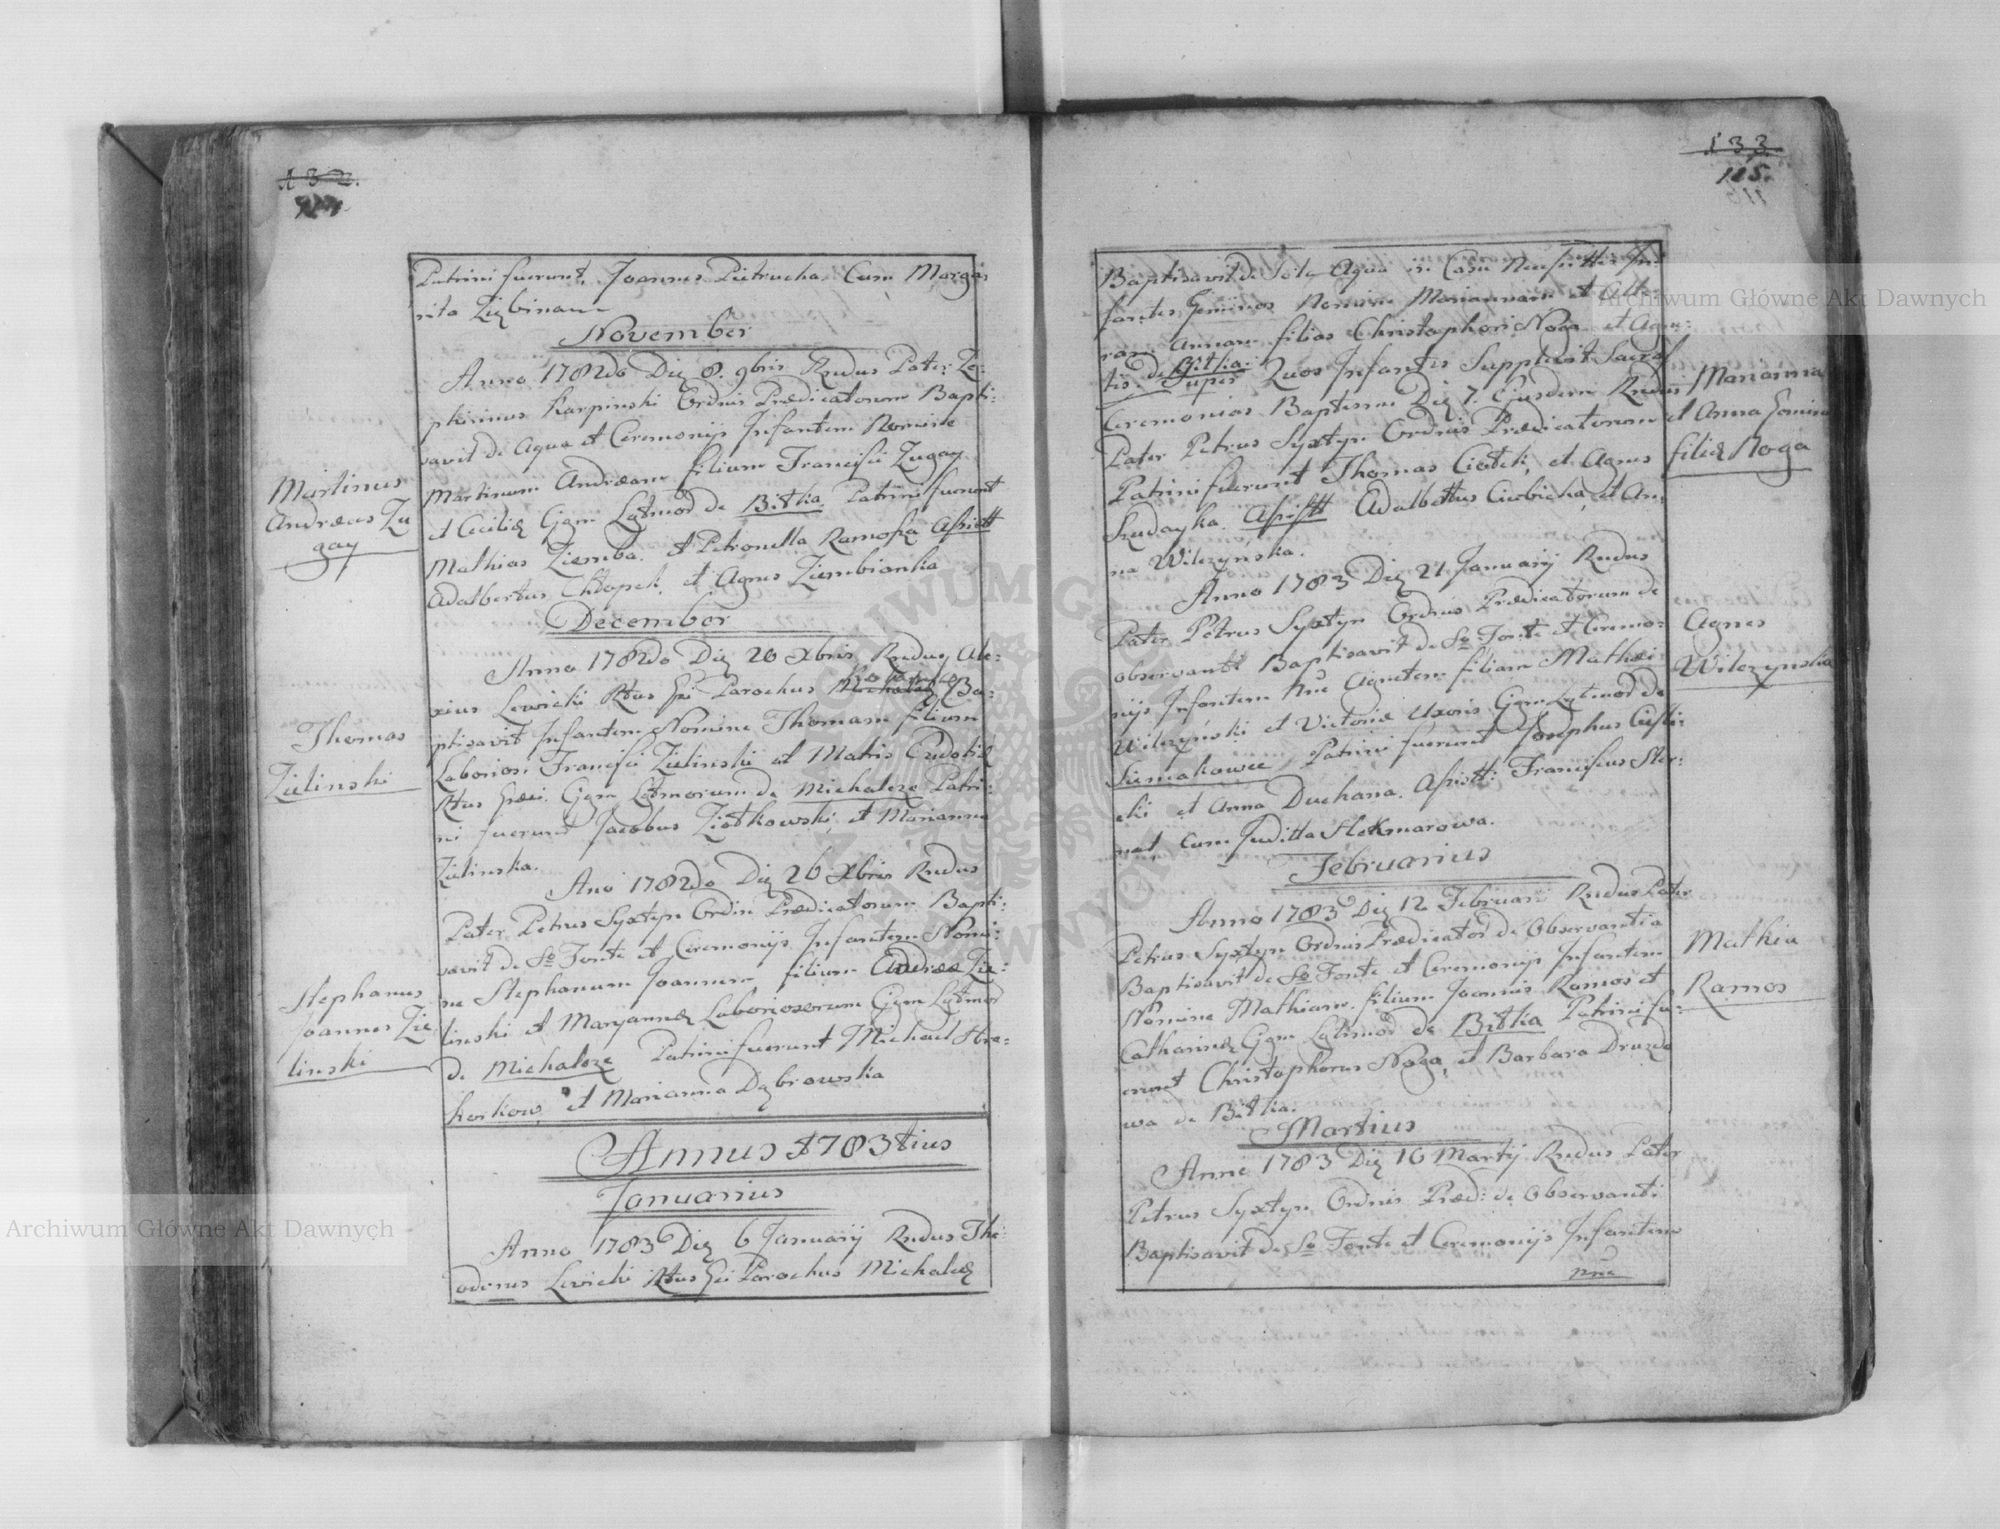 132.
Patrini fuerunt, Joannes Pietrucha Cum Marga:
rita Zięбinam
November
Anno 1782do Die 8. 9bris Rndus Pater Ze:
phirinus Karpinski Ordnis Prædicatorum Bapti:
savit de Aqua et Ceremonijs Infantem Nomine
Martinum Andream filium Francisci Zugay
et Ceciliæ Cjgm Lgtmor de Bitkia Patrini fuerunt
Mathias Ziemba. et Petronella Ramoska Asistt
Adalbertus Chłopek, et Agnes Ziembionka
Martinus
Andreas Zu
gay
December
Anno 1782do Die 20 Xbris Rndus Ale:
xius Lewicki Rtus Gci Parochus Baptisavit
ptisavit Infantem Nomine Thomam filium
Laboriosi Francisci Zielinski et Matris Eudokiæ
Rtus Græci Cjgm Lgtmorum de Michalcze Patri:
ni fuerunt Jacobus Ziołkowski, et Marianna
Zielinska.
Thomas
Zielinski
Ano 1782do Die 26 Xbris Rndus
Pater Petrus Syxtyn Ordin Prædicatorum Bapti:
savit de So Fonte et Ceremonijs Infantem Nomi:
ne Stephanum Joannem filium Andreæ Zie:
linski et Maryannæ Laboriosorum Cjgm Lgtmor
de Michalcze Patrini fuerunt Michael Hre:
horkow, et Marianna Dąbrowska
Stephanus
Joannes Zie
linski
Annus 1783tius
Januarius
Anno 1783 Die 6 Januarij Rndus The:
odorus Lewicki Rtus Gci Parochus Michalcz
133
115.
Baptisavit de Sola Aqua in Casu Necessitatis In:
fantes Geminos Nomine Mariannam et Alte:
ram Annam filias Christophori Noga et Agne:
tis: de Bitkia: Super Quos Infantes Supplevit Sacras
Ceremonias Baptismi Die 7. Ejusdem Rndus
Pater Petrus Syxtyn Ordnis Prædicatorum
Patrini fuerunt Thomas Ciołek, et Agnes
Szudayka. Asistt Adalbettus Cierbicha, et An,
na Wilczyńska.
Marianna
et Anna Gemin
filiæ Noga
Anno 1783 Die 21 Januarij Rndus
Pater Petrus Syxtyn Ordnis Prædicatorum de
observanti Baptisavit de So Fonte et Ceremo:
nijs Infantem Nne Agnetem filiam Mathæi
Wilczyński et Victoriæ Uxoris Cjgm Lgtmor de
Siemakowce Patrini fuerunt Josephus Ciesli:
cki et Anna Duchana. Asistt: Franciscus Ster:
nal cum Juditta Slekmarowa.
Agnes
Wilczynska
Februarius
Anno 1783 Die 12 Februarij Rndus Pater
Petrus Syxtyn Ordnis Prædicator de Observantia
Baptisavit de So Fonte et Ceremonijs Infantem
Nomine Mathiam filium Joannis Ramos et
Catharinæ Cjgm Lgtmor de Bitkia Patrini fu:
erunt Christophorus Noga, et Barbara Druzdo
wa de Bitkia.
Mathia
Ramos
Martius
Anni 1783 Die 16 Martij Rndus Pater
Petrus Syxtyn Ordnis Præd: de Observanti
Baptisavit de So Fonte et Ceremonijs Infantem
nne
Archiwum Główne Akt Dawnych
Archiwum Główne Akt Dawnych